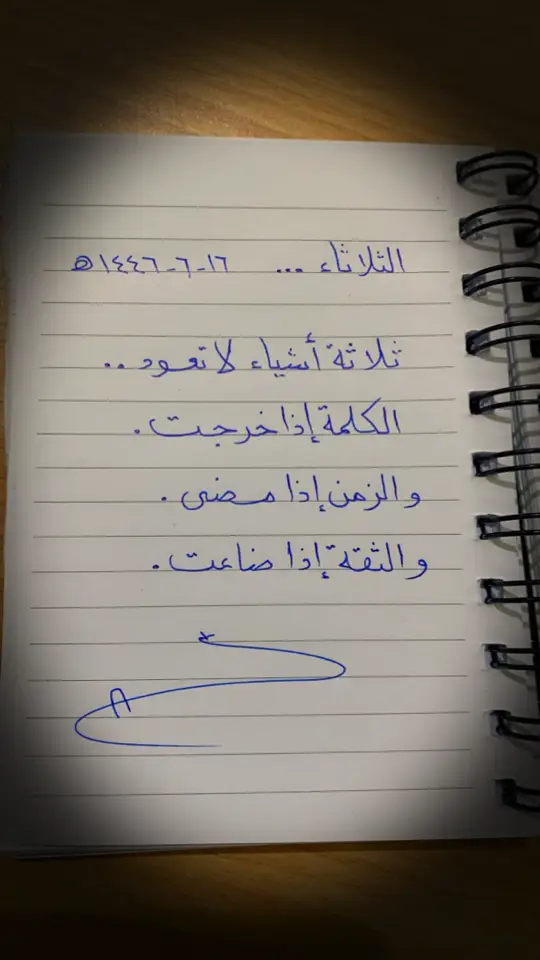 الثلاثاء ... ١٦-٦-١٤٤٦ه
ثلاثة أشياء لا تعود ..
الكلمة إذا خرجت .
والزمن إذا مضى .
والثقة إذا ضاعت .